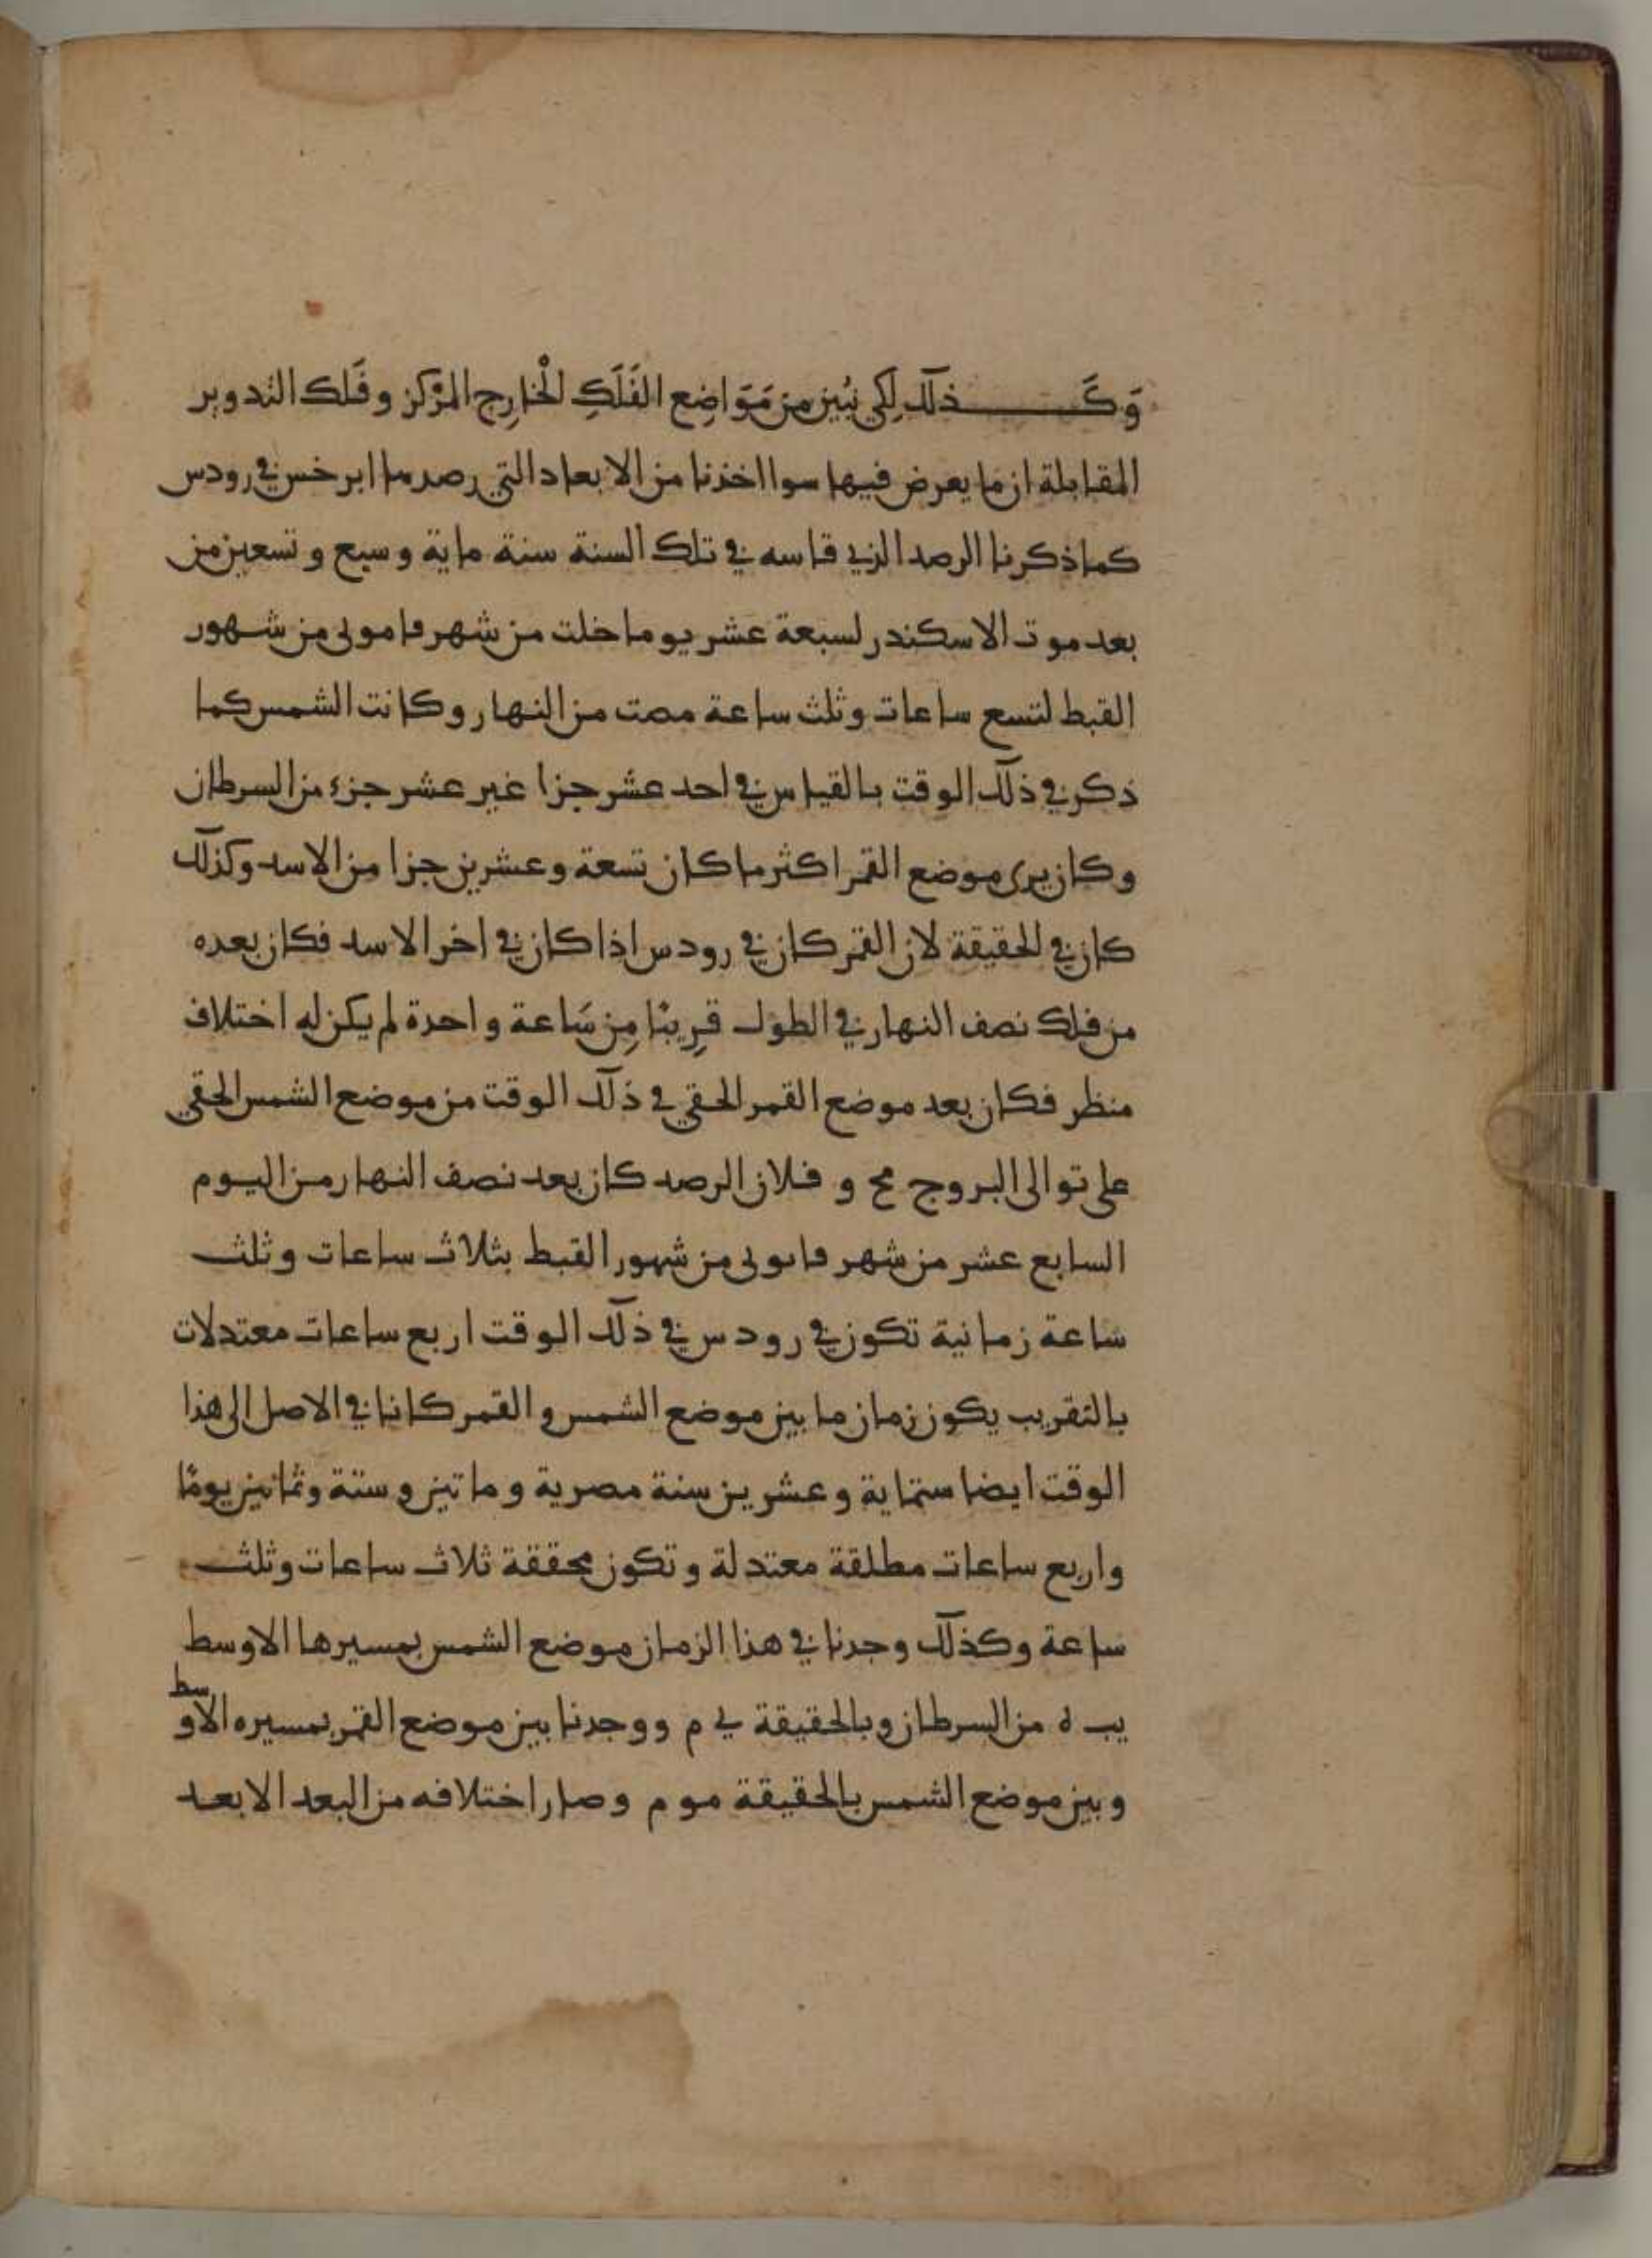 وَكَــــذلك لِكَي نُبَيِّن مِن مَوَاضِع الفَلَكِ الْخَارِج المَرْكز وفَلك التدوير
المقابلة ان ما يعرض فيها سوا اخذنا من الابعاد التي رصدها ابرخس في رودس
كما ذكرنا الرصد الذي قاسه في تلك السنة سنة ماية وسبع وتسعين من
بعد موت الاسكندر لسبعة عشر يوما خلت من شهر فامولى من شهور
القبط لتسع ساعات وثلث ساعة مضت من النهار وكانت الشمس كما
ذكر في ذلك الوقت بالقياس في احد عشر جزا غير عشر جزء من السرطان
وكان يرى موضع القمر اكثر ما كان تسعة وعشرين جزا من الاسد وكذلك
كان في الحقيقة لان القمر كان في رودس اذا كان في اخر الاسد فكان بعده
من فلك نصف النهار في الطول قَرِيبًا مِن سَاعة واحدة لم يكن له اختلاف
منظر فكان بعد موضع القمر الحقي في ذلك الوقت من موضع الشمس الحقي
على توالى البروج مح و فلان الرصد كان بعد نصف النهار من اليوم
السابع عشر من شهر فامولى من شهور القبط بثلاث ساعات وثلث
ساعة زمانية تكون في رودس في ذلك الوقت اربع ساعات معتدلات
بالتقريب يكون زمان ما بين موضع الشمس والقمر كانا في الاصل الى هذا
الوقت ايضا ستماية وعشرين سنة مصرية وماتين وستة وثمانين يومًا
واربع ساعات مطلقة معتدلة وتكون محققة ثلاث ساعات وثلث
ساعة وكذلك وجدنا في هذا الزمان موضع الشمس بمسيرها الاوسط
يب ه من السرطان وبالحقيقة ي م ووجدنا بين موضع القمر بمسيره الاوسط
وبين موضع الشمس بالحقيقة مو م وصار اختلافه من البعد الابعد